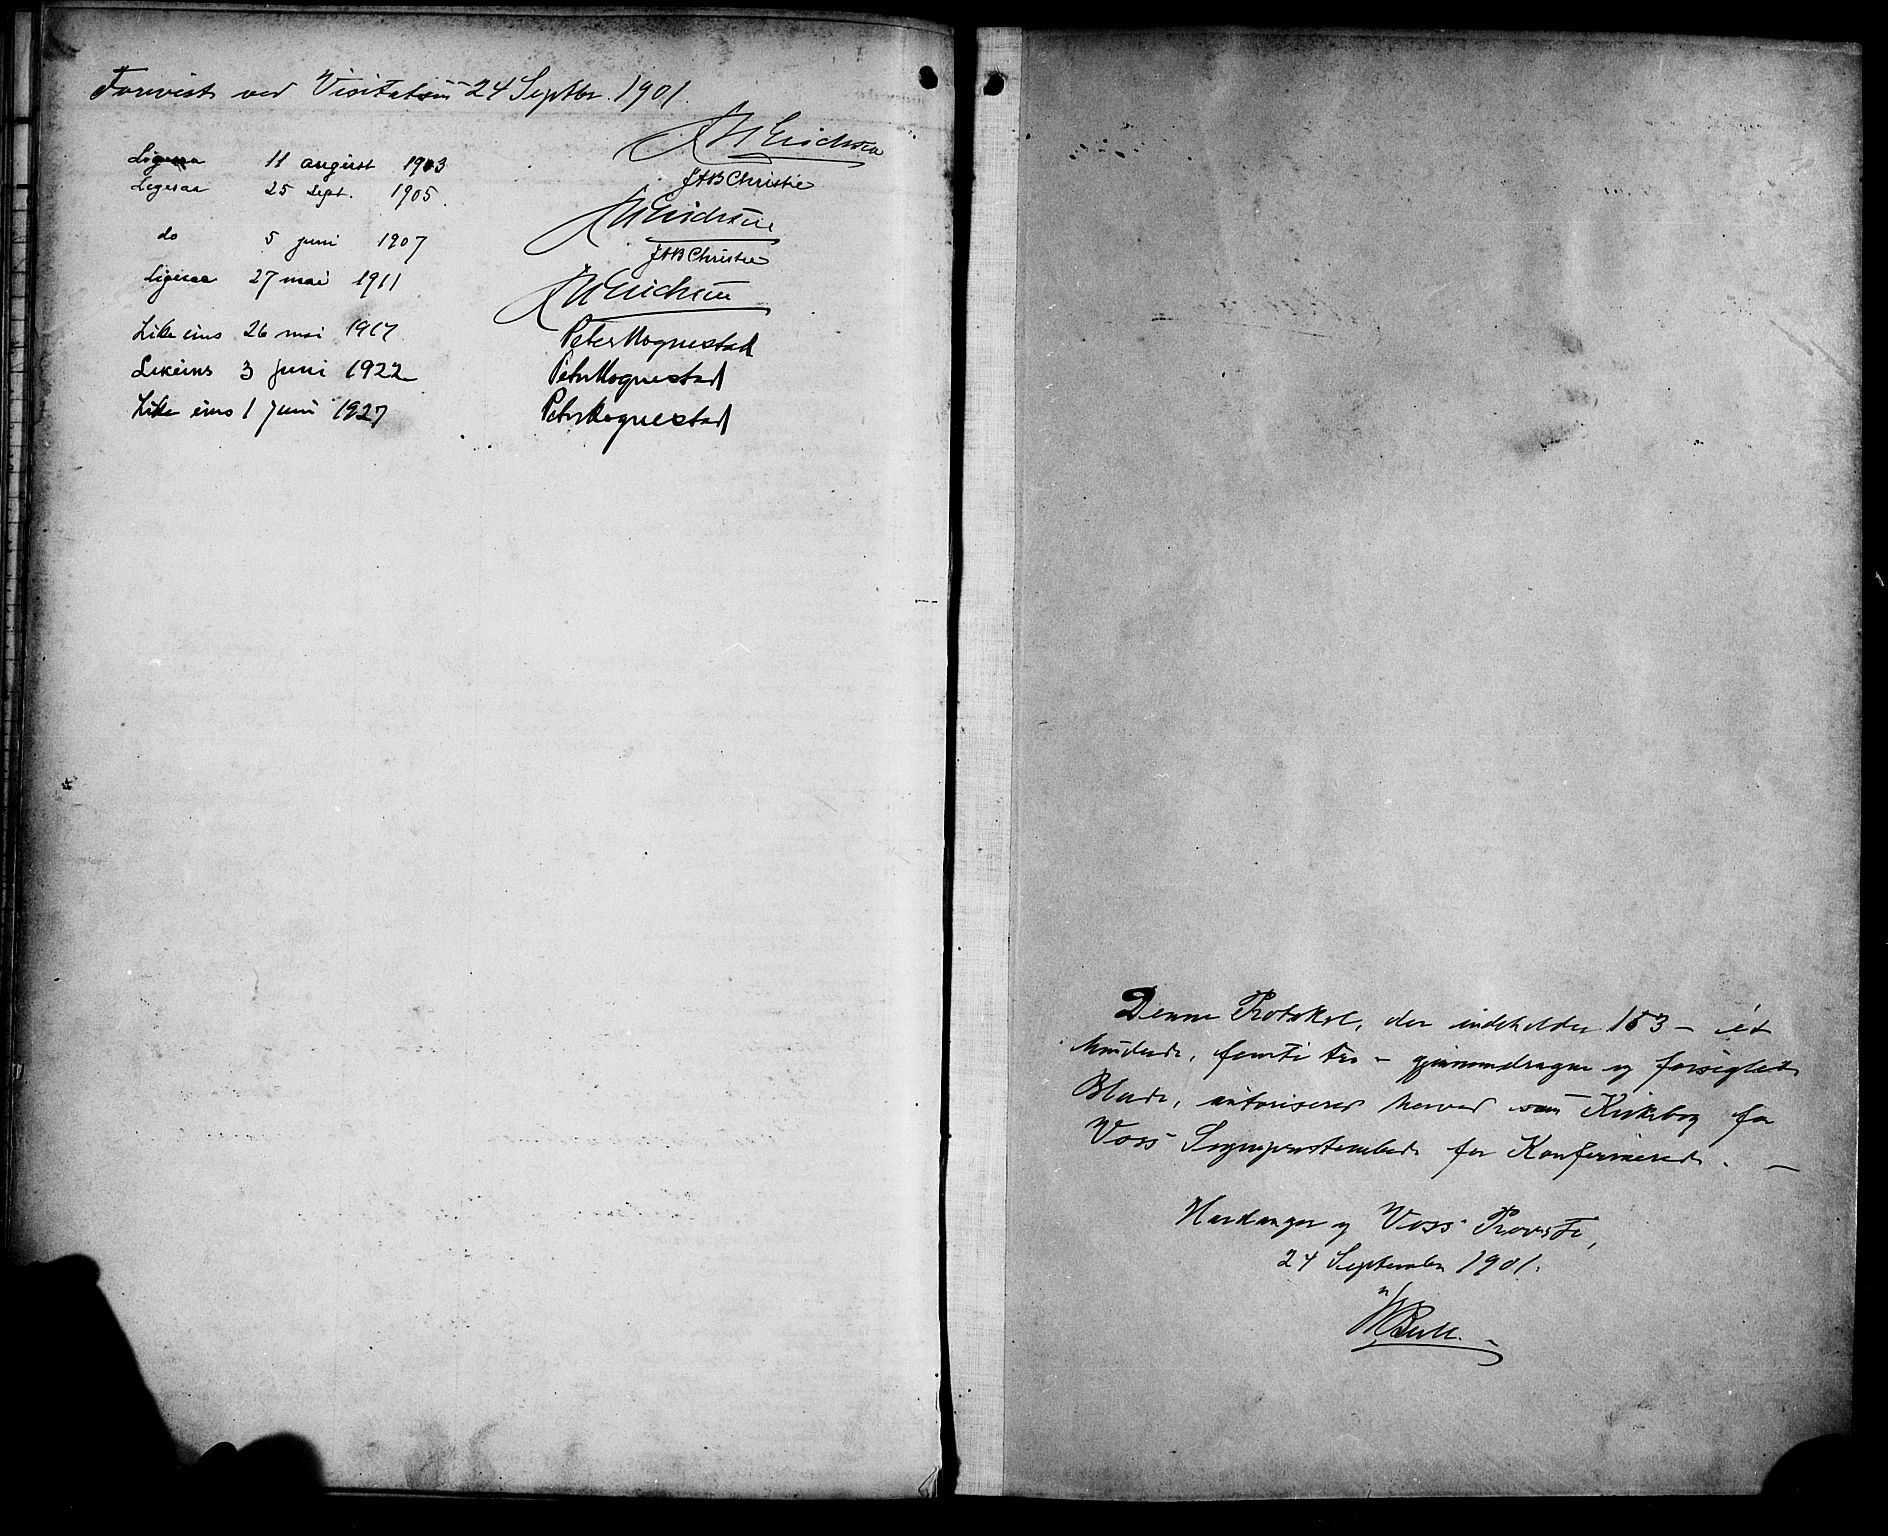 Forevist ved Visitatsen 24 Septbr. 1901.
JW Erichsen
Ligesaa 11 august 1903
JAB Christie
Ligesaa 25 sept. 1905.
JW Erichsen
do 5 juni 1907
JAB Christie
Ligesaa 27 mai 1911
JW Erichsen
Like eins 26 mai 1917.
Peter Hognestad
Likeins 3 juni 1922
Peter Hognestad
Like eins 1 juni 1927
Peter Hognestad
Denne Protokol, der indeholder 153 – ét
hundrede, femti tre – gjennemdragne og forseglede
Blade, autoriseres herved som Kirkebog for
Voss Sognepresteembede for Konfirmerede. –
Hardanger og Voss Provsti,
24 September 1901.
Bull.